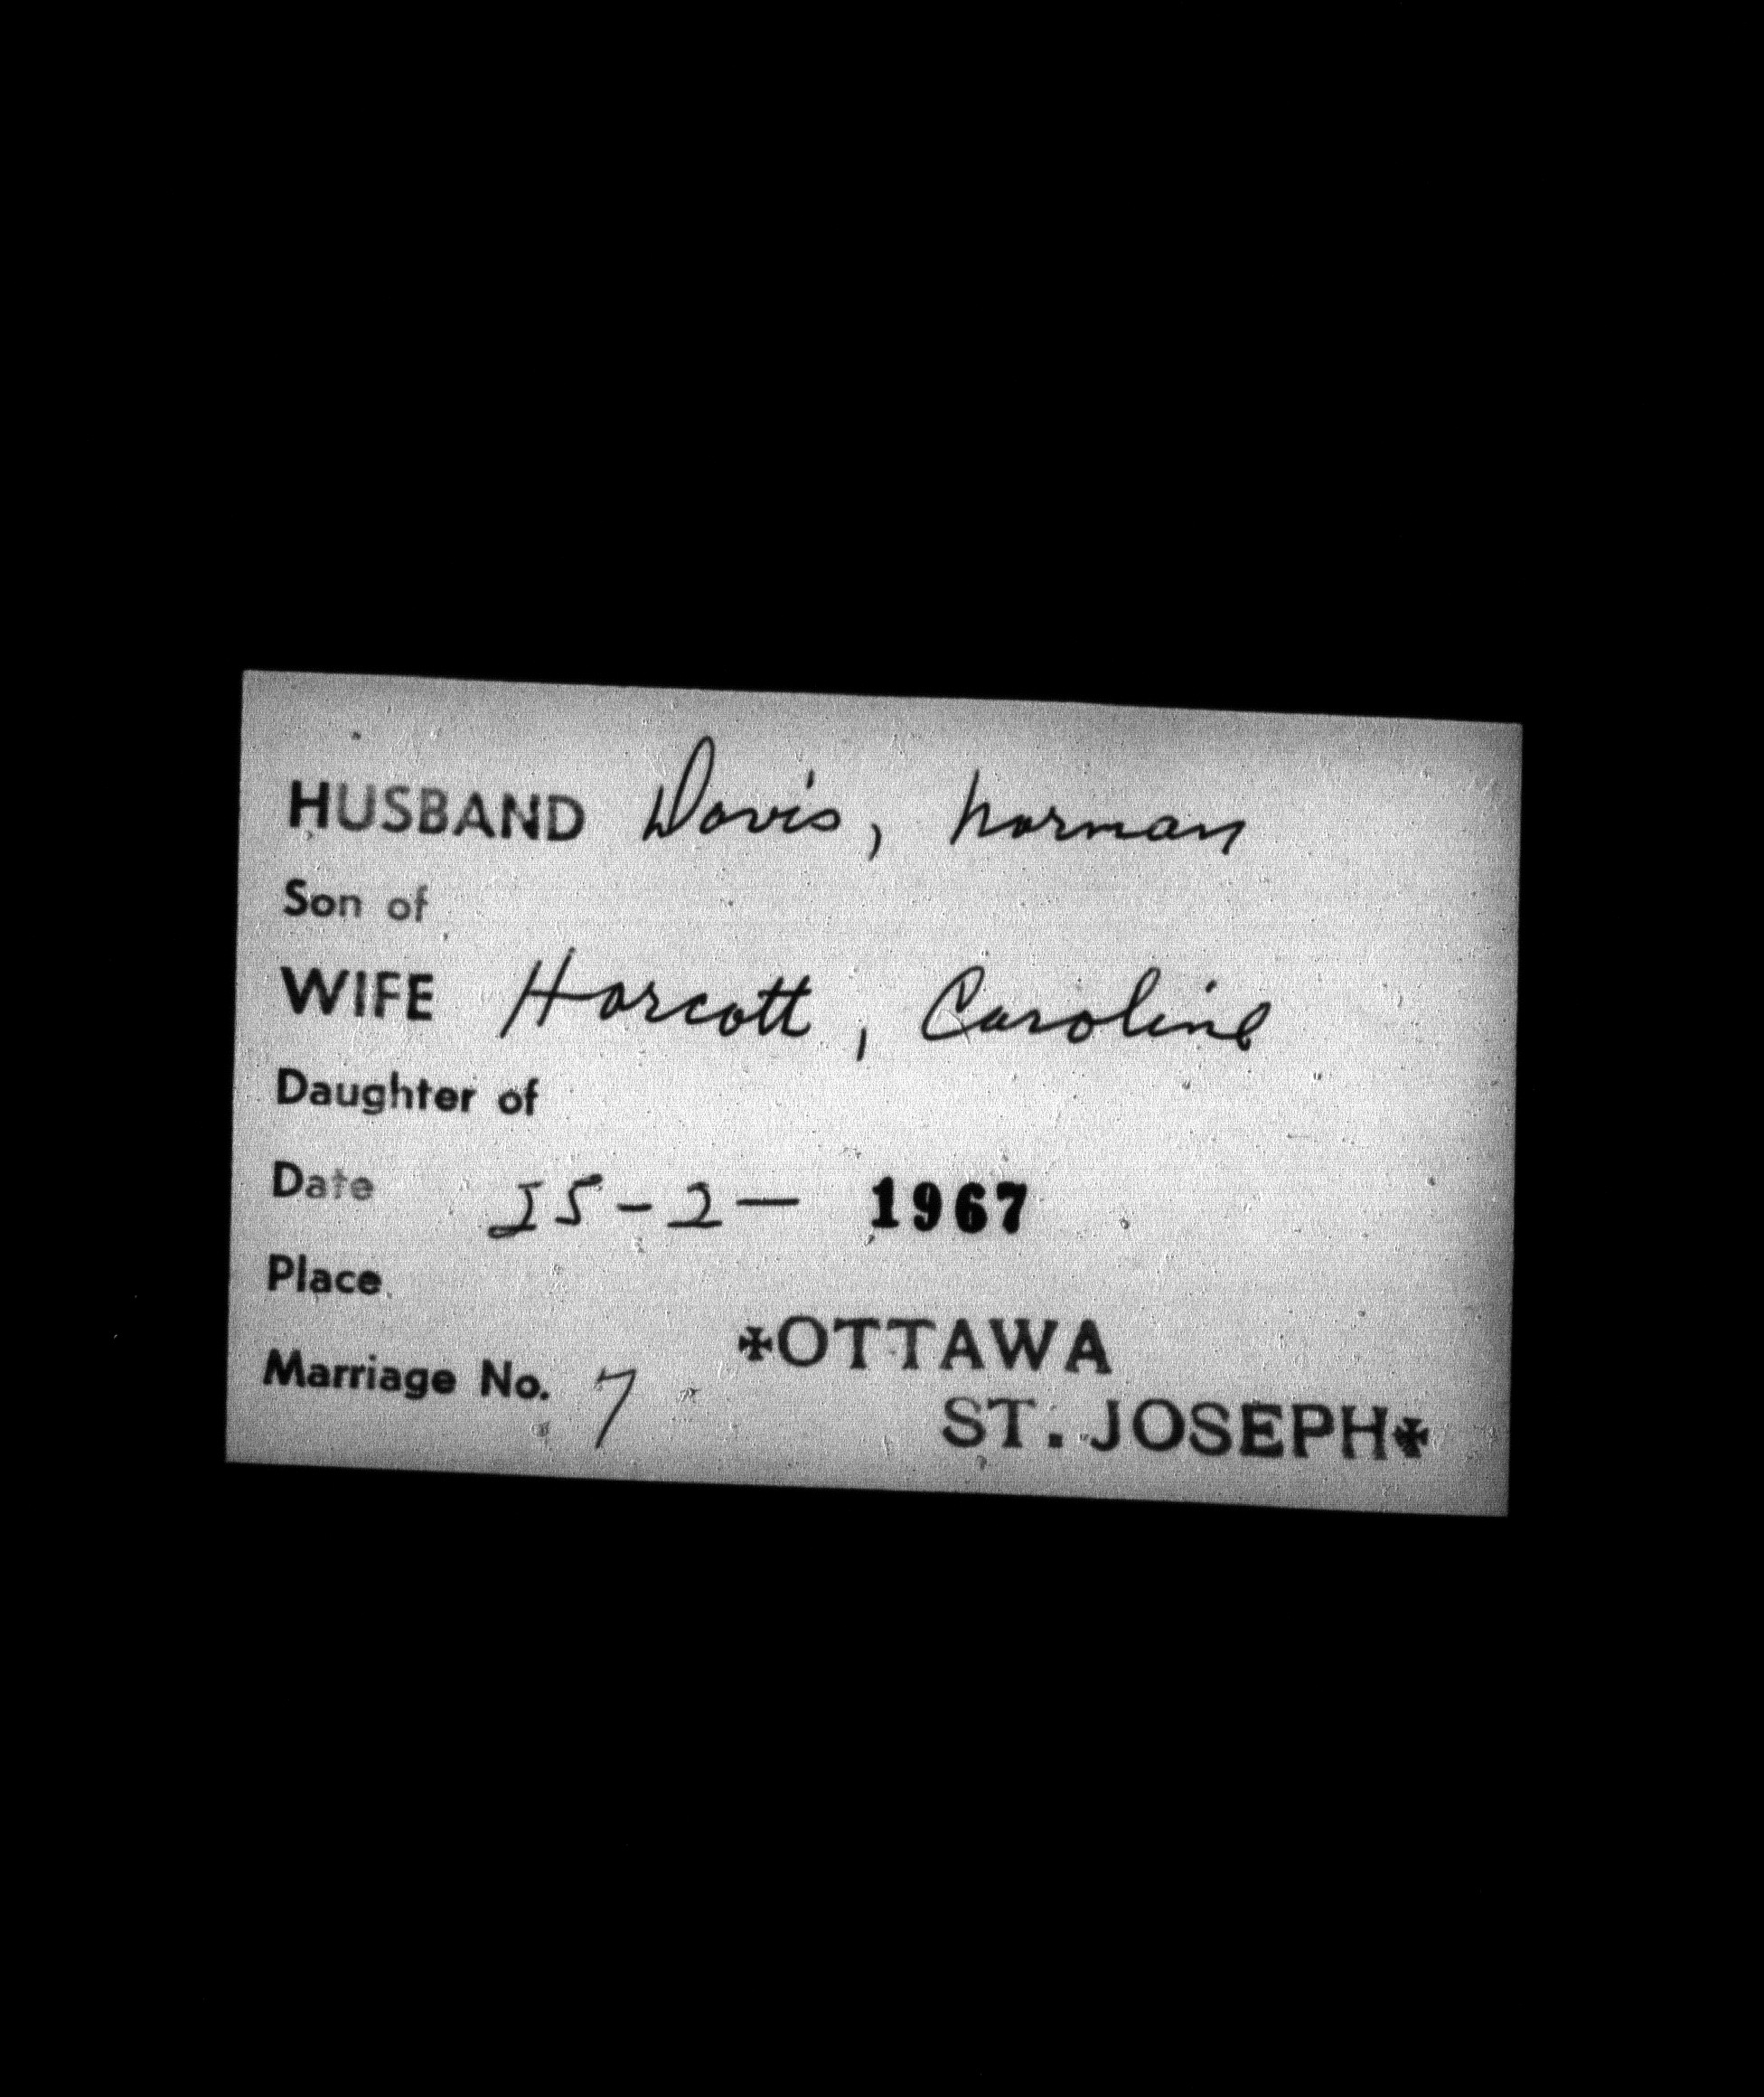 HUSBAND Davis, Norman
Son of
WIFE Harcott, Caroline
Daughter of
Date 25-2- 1967
Place
✠OTTAWA
Marriage No. 7
ST. JOSEPH✠